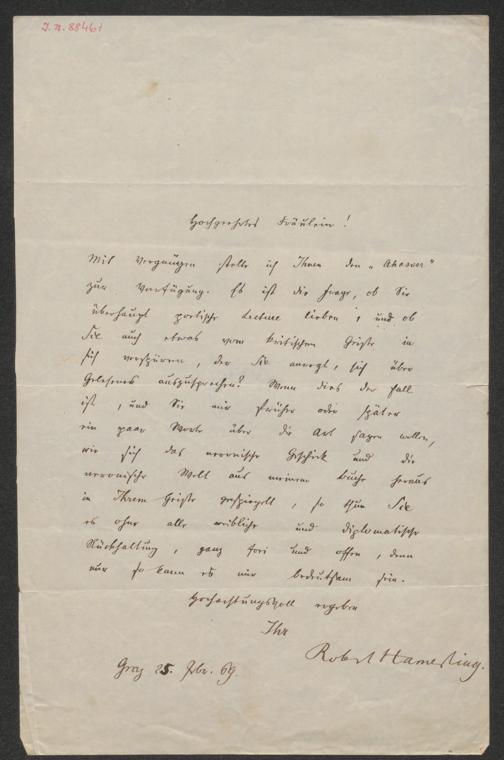 I. N. 88461
Hochgeehrtes Fräulein!
Mit Vergnügen stelle ich Ihnen den „Ahasver"
zur Verfügung. Es ist die Frage, ob Sie
überhaupt poetische Lecture lieben, und ob
Sie auch etwas vom kritischen Geiste in
sich verspüren, der Sie anregt, sich über
Gelesenes auszusprechen? Wenn dies der Fall
ist, und Sie mir früher oder später
ein paar Worte über die Art sagen wollen,
wie sich das neronische und die
neronische Welt aus meinem Buche heraus
in Ihrem Geiste gespiegelt, so thun Sie
es ohne alle weibliche und diplomatische
Rückhaltung, ganz frei und offen, denn
nur so kann es mir bedeutsam sein.
Hochachtungsvoll ergeben
Ihr
Robert Hamerling.
Graz 25. 69.